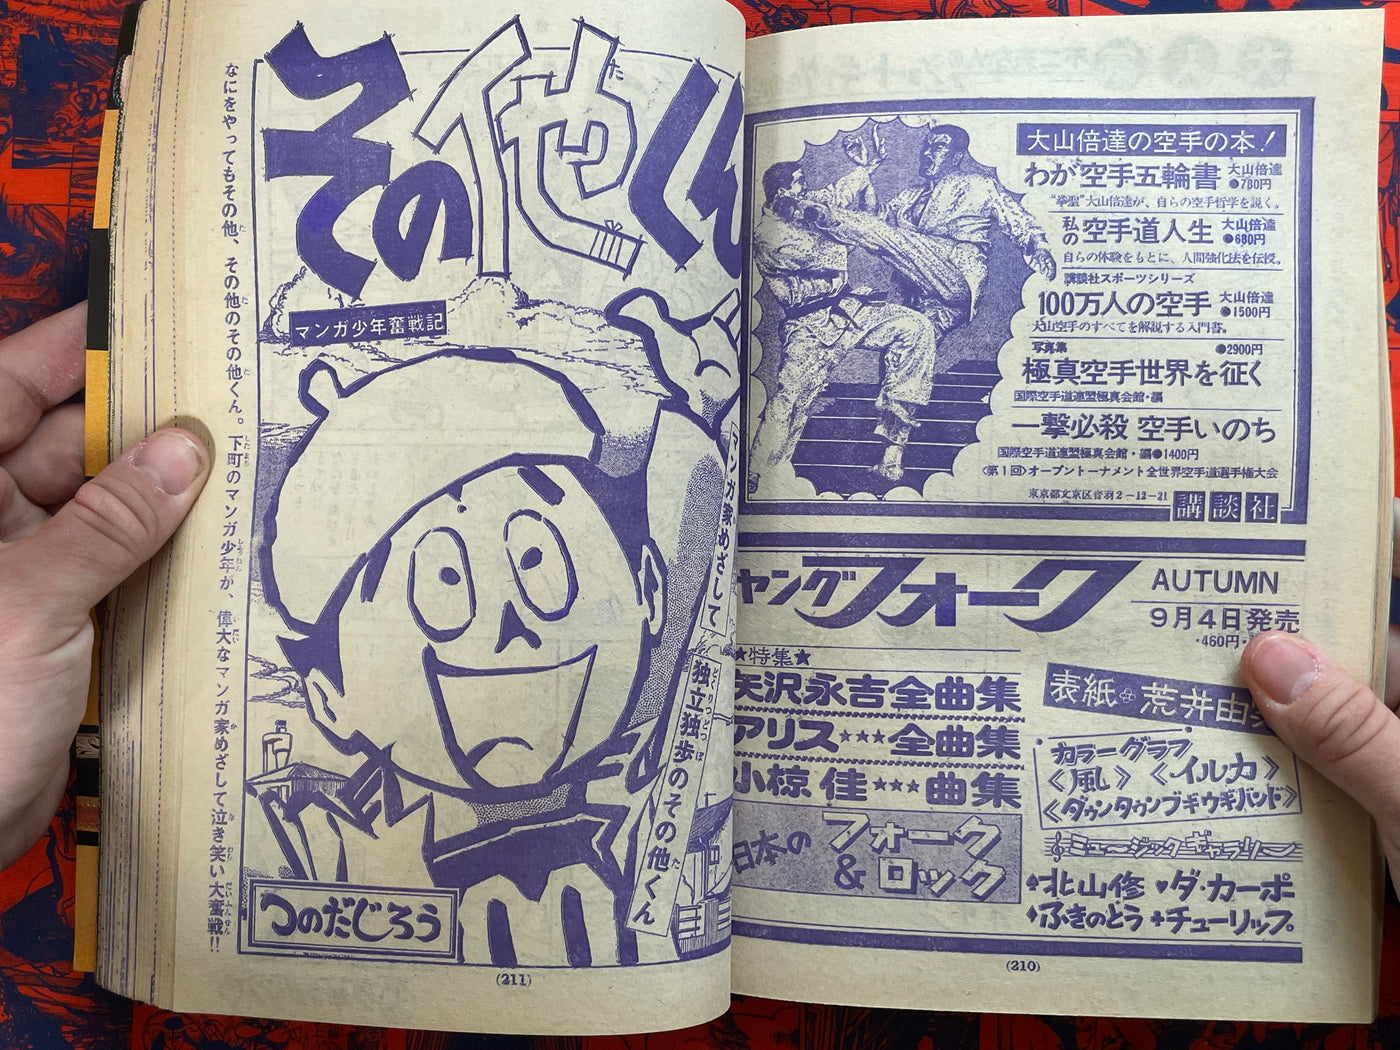 大山倍達の空手の本！
わが空手五輪書 大山倍達 ●780円
“拳聖”大山倍達が、自らの空手哲学を説く。
私の空手道人生 大山倍達 ●680円
自らの体験をもとに、人間強化法を伝授。
講談社スポーツシリーズ
100万人の空手 大山倍達 ●1500円
大山空手のすべてを解説する入門書。
写真集 ●2900円
極真空手世界を征く
国際空手道連盟極真会館・編
一撃必殺 空手いのち
国際空手道連盟極真会館・編●1400円
〈第1回〉オープントーナメント全世界空手道選手権大会
東京都文京区音羽2-12-21 講談社
ヤングフォーク AUTUMN
9月4日発売
・460円・
★特集★
矢沢永吉全曲集
アリス★★★全曲集
小椋佳★★★曲集
日本のフォーク&ロック
表紙 荒井由実
カラーグラフ
〈風〉〈イルカ〉
〈ダウンタウンブギウギバンド〉
ミュージックギャラリー
♦北山修 ♥ダ・カーポ
♦ふきのとう +チューリップ。
(210)
その他くん
た
マンガ少年奮戦記
マンガ家めざして
独立独歩のその他くん
つのだじろう
なにをやってもその他、その他のその他くん。下町のマンガ少年が、偉大なマンガ家めざして泣き笑い大奮戦!!
(211)